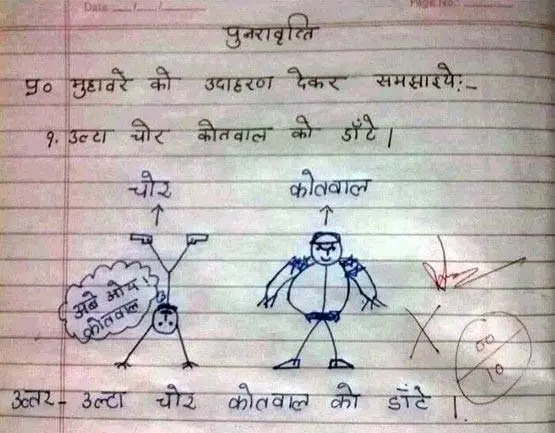 Date ___/___/___
Page No.:
पुनरावृत्ति
प्र० मुहावरे को उदाहरण देकर समझाइये:-
१. उल्टा चोर कोतवाल को डाँटे।
चोर
कोतवाल
अबे ओए!
कोतवाल
00
10
उत्तर - उल्टा चोर कोतवाल को डाँटे।